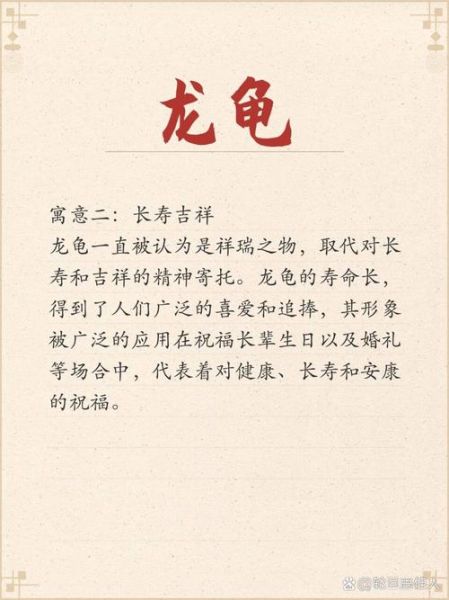 龙龟
寓意二：长寿吉祥
龙龟一直被认为是祥瑞之物，取代对长
寿和吉祥的精神寄托。龙龟的寿命长，
得到了人们广泛的喜爱和追捧，其形象
被广泛的应用在祝福长辈生日以及婚礼
等场合中，代表着对健康、长寿和安康
的祝福。